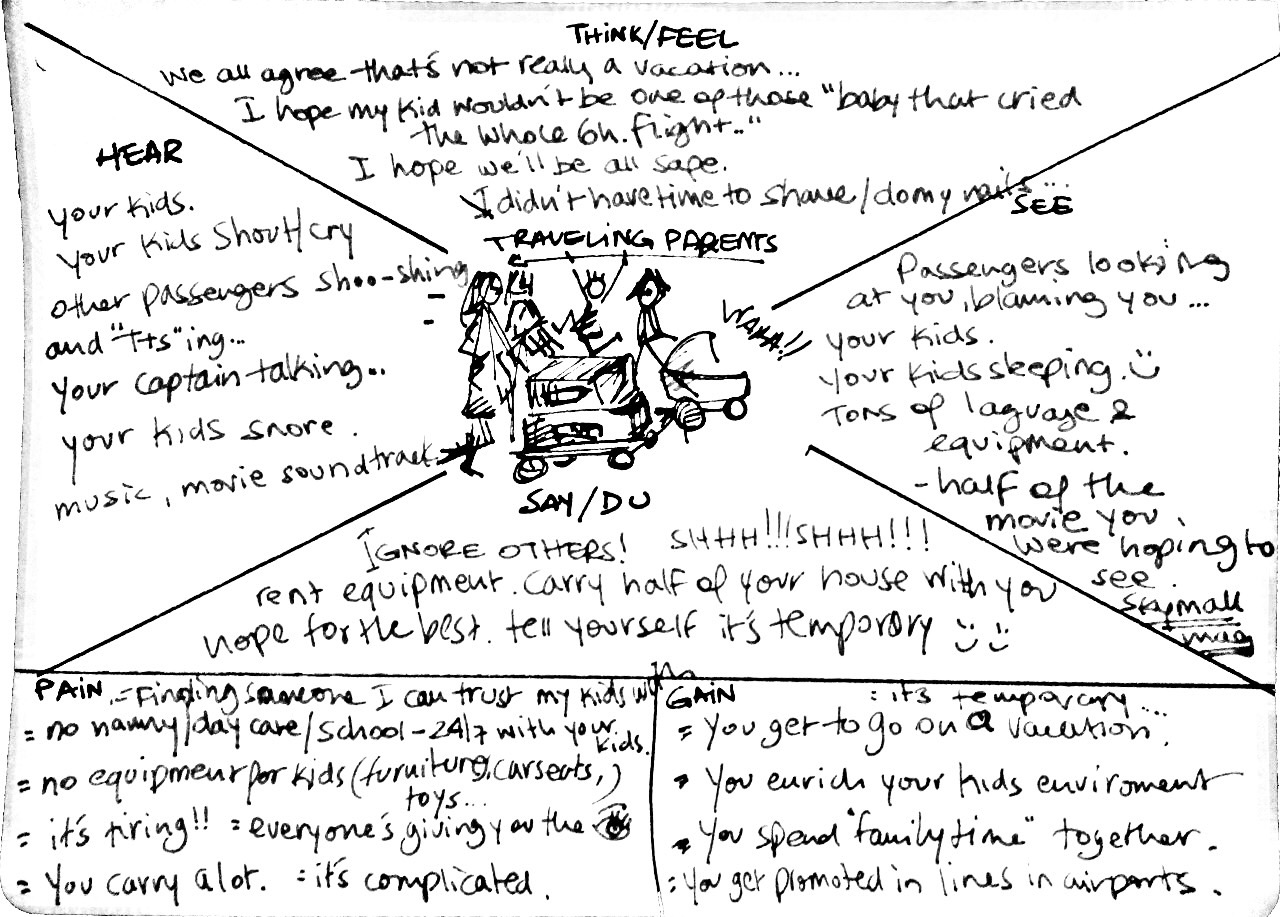 THINK/FEEL
We all agree that's not really a vacation...
I hope my kid wouldn't be one of those "baby that cried
the whole 6h. flight.."
I hope we'll be all safe.
I didn't have time to shave/do my nails...
HEAR
your kids.
your kids shout/cry
other passengers shoo-shing
and "Tts"ing...
your captain talking...
your kids snore.
music, movie soundtrack.
TRAVELING PARENTS
WAAA!!
SEE
Passengers looking
at you, blaming you...
your kids.
your kids sleeping.
Tons of laguage &
equipment.
- half of the
movie you
were hoping to
see.
Skymall
mag
SAY/DU
IGNORE OTHERS! SHHH!!!SHHH!!!
rent equipment. carry half of your house with you
hope for the best. tell yourself it's temporary
PAIN = Finding someone I can trust my kids w/
= no nanny/day care/school - 24/7 with your
kids.
= no equipment for kids (furniture, carseats,)
toys...
= it's tiring!! = everyone's giving you the
= You carry a lot. = it's complicated.
GAIN = it's temporary...
= You get to go on a vacation.
= You enrich your kids enviroment
= You spend "family time" together.
= You get promoted in lines in airports.